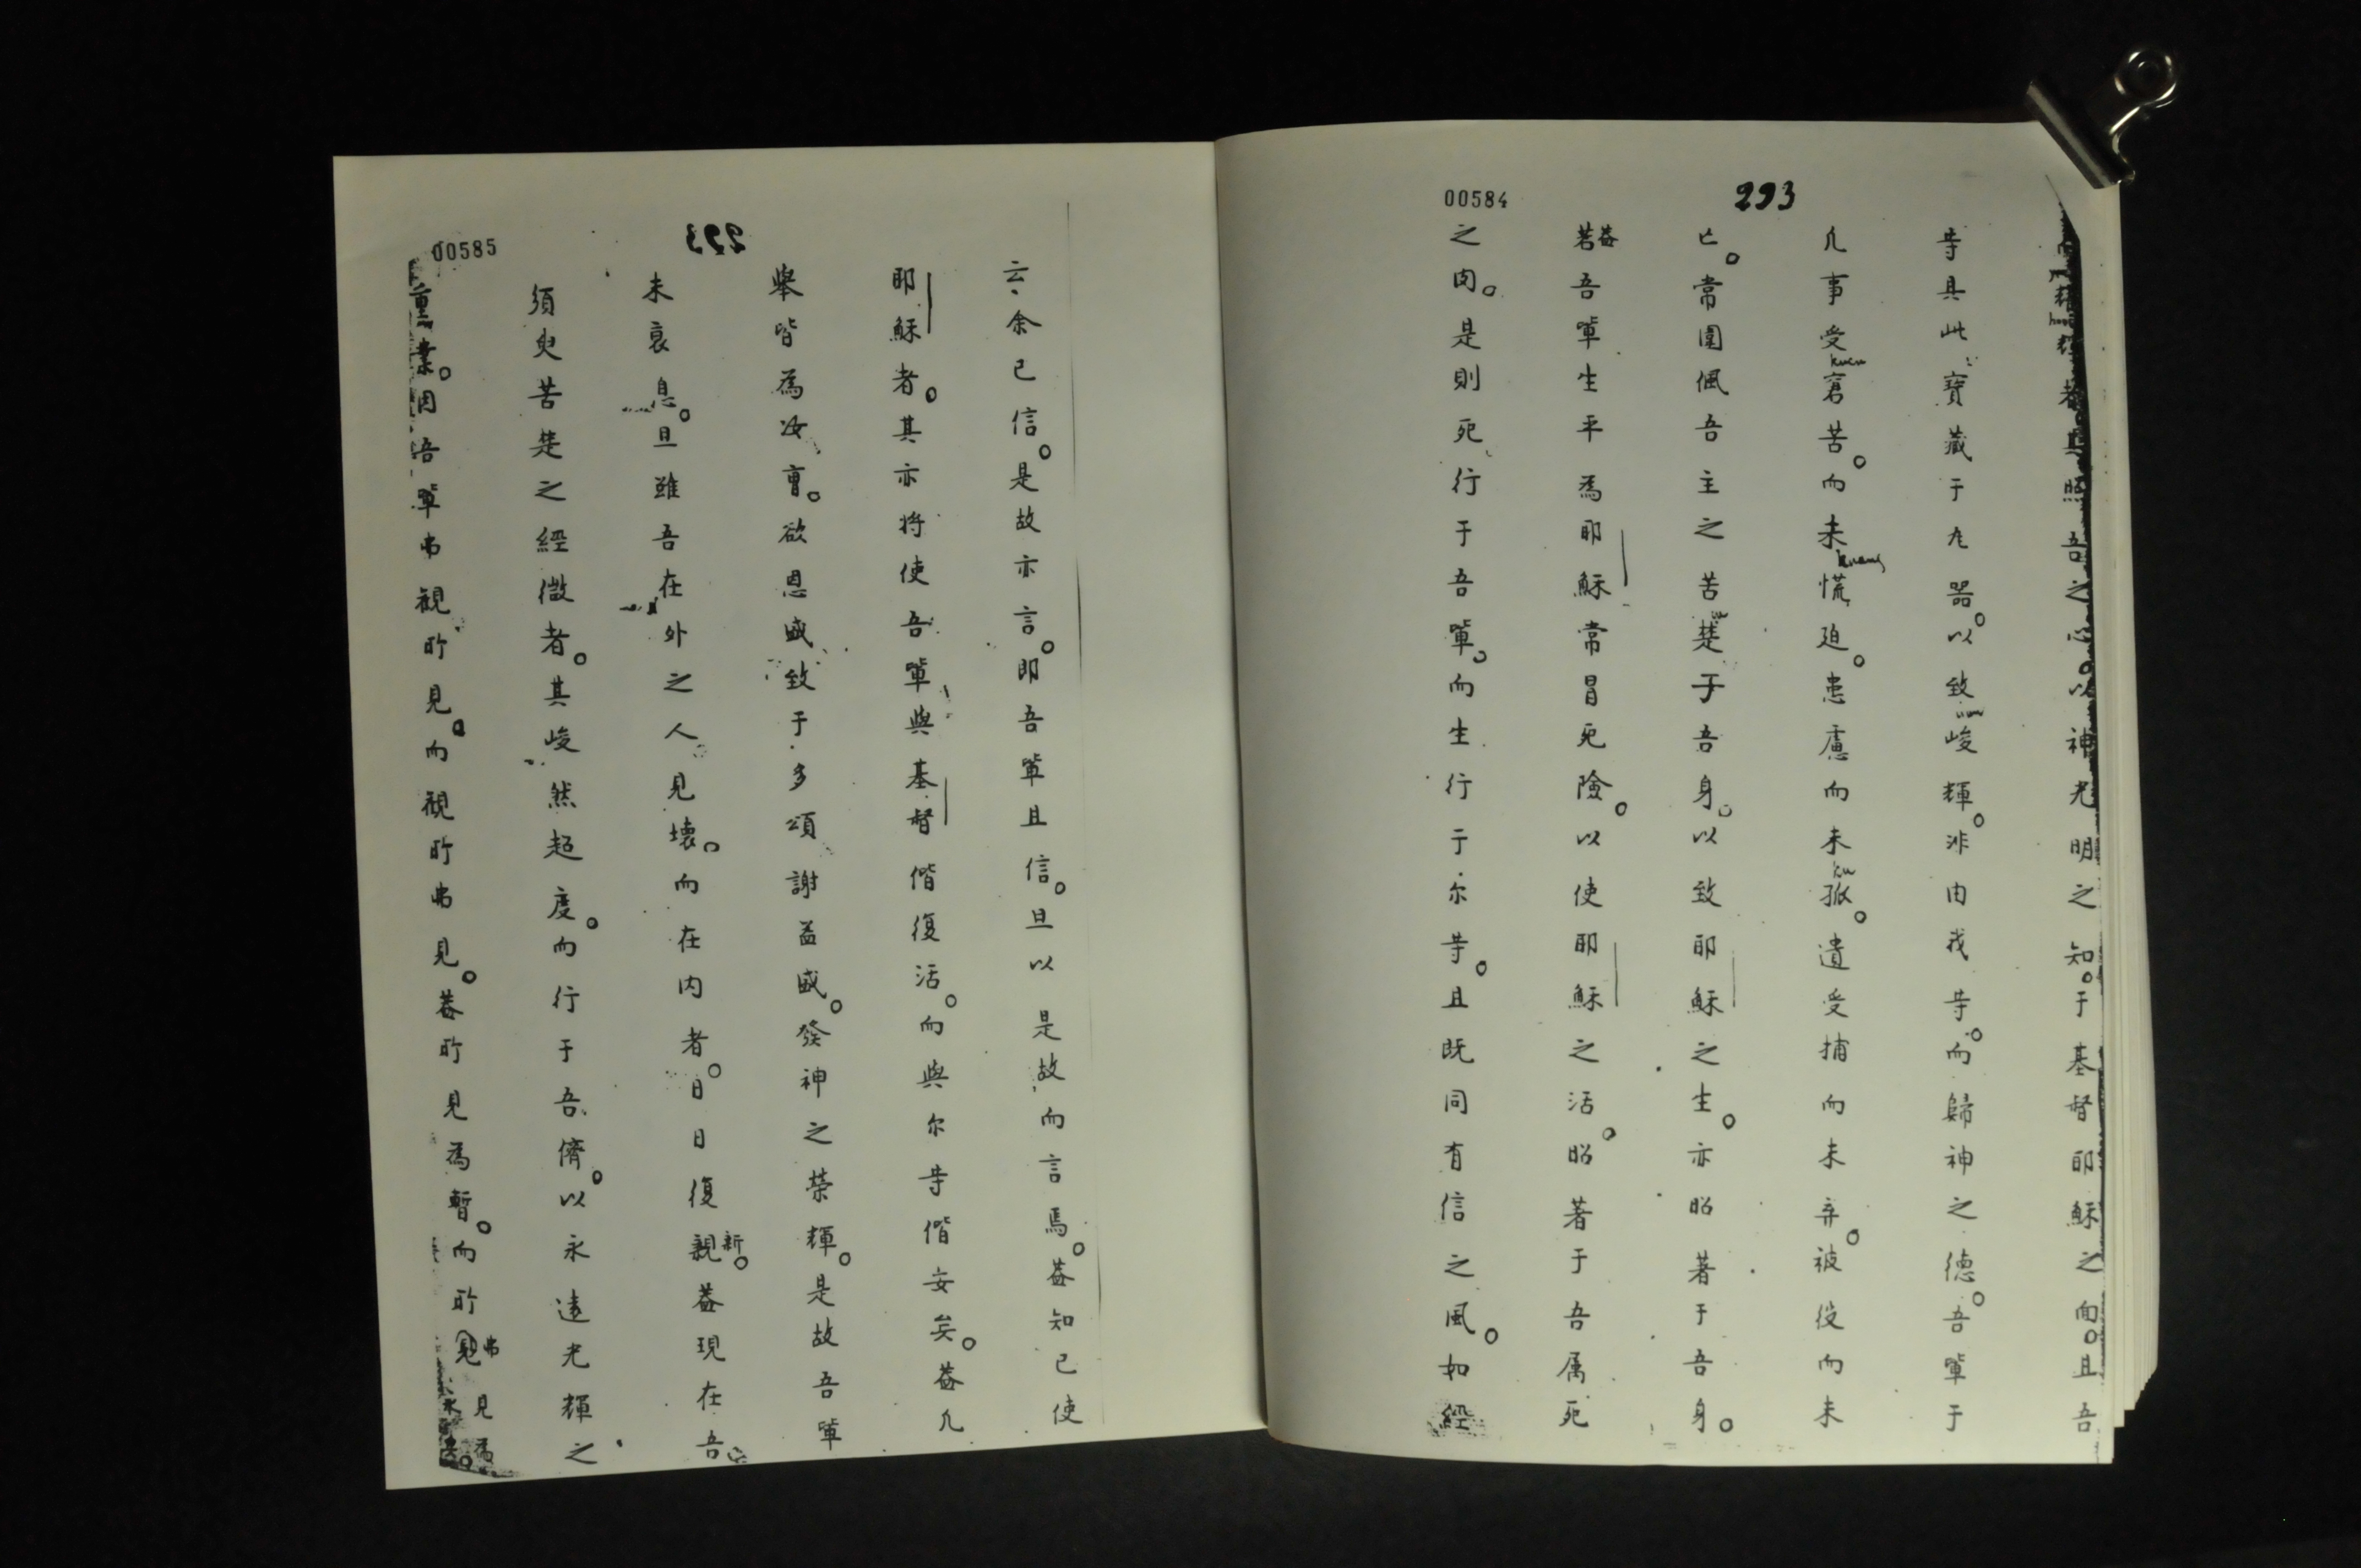 00584
293
耀者其照吾之心。以神光明之知。于基督耶穌之面。且吾
等具此寶藏于瓦器。以致峻輝。非由我等。而歸神之德。吾輩于
凡事受窘苦。而未慌迫。患慮而未孤。遺受捕而未弃。被役而未
亡。常圍佩吾主之苦楚于吾身。以致耶穌之生。亦昭著于吾身。
蓋若吾輩生平為耶穌常冒死險。以使耶穌之活。昭著于吾属死
之肉。是則死行于吾輩。而生行于尔等。且既同有信之風。如經
kuen
kuang
ku
00585
293
云、余已信。是故亦言。即吾輩且信。旦以是故而言焉。蓋知已使
耶穌者。其亦将使吾輩與基督偕復活。而與尔等偕妄矣。蓋凡
舉皆為汝曹。欲恩盛致于多頌謝益盛。發神之荣輝。是故吾輩
未衰息。旦雖吾在外之人見壊。而在内者。日日復親新。蓋現在吾
須臾苦楚之經微者。其峻然超度。而行于吾儕。以永遠光輝之
重業。因吾輩弗観所見。而観所弗見。蓋所見為暫。而所見弗見為永矣。